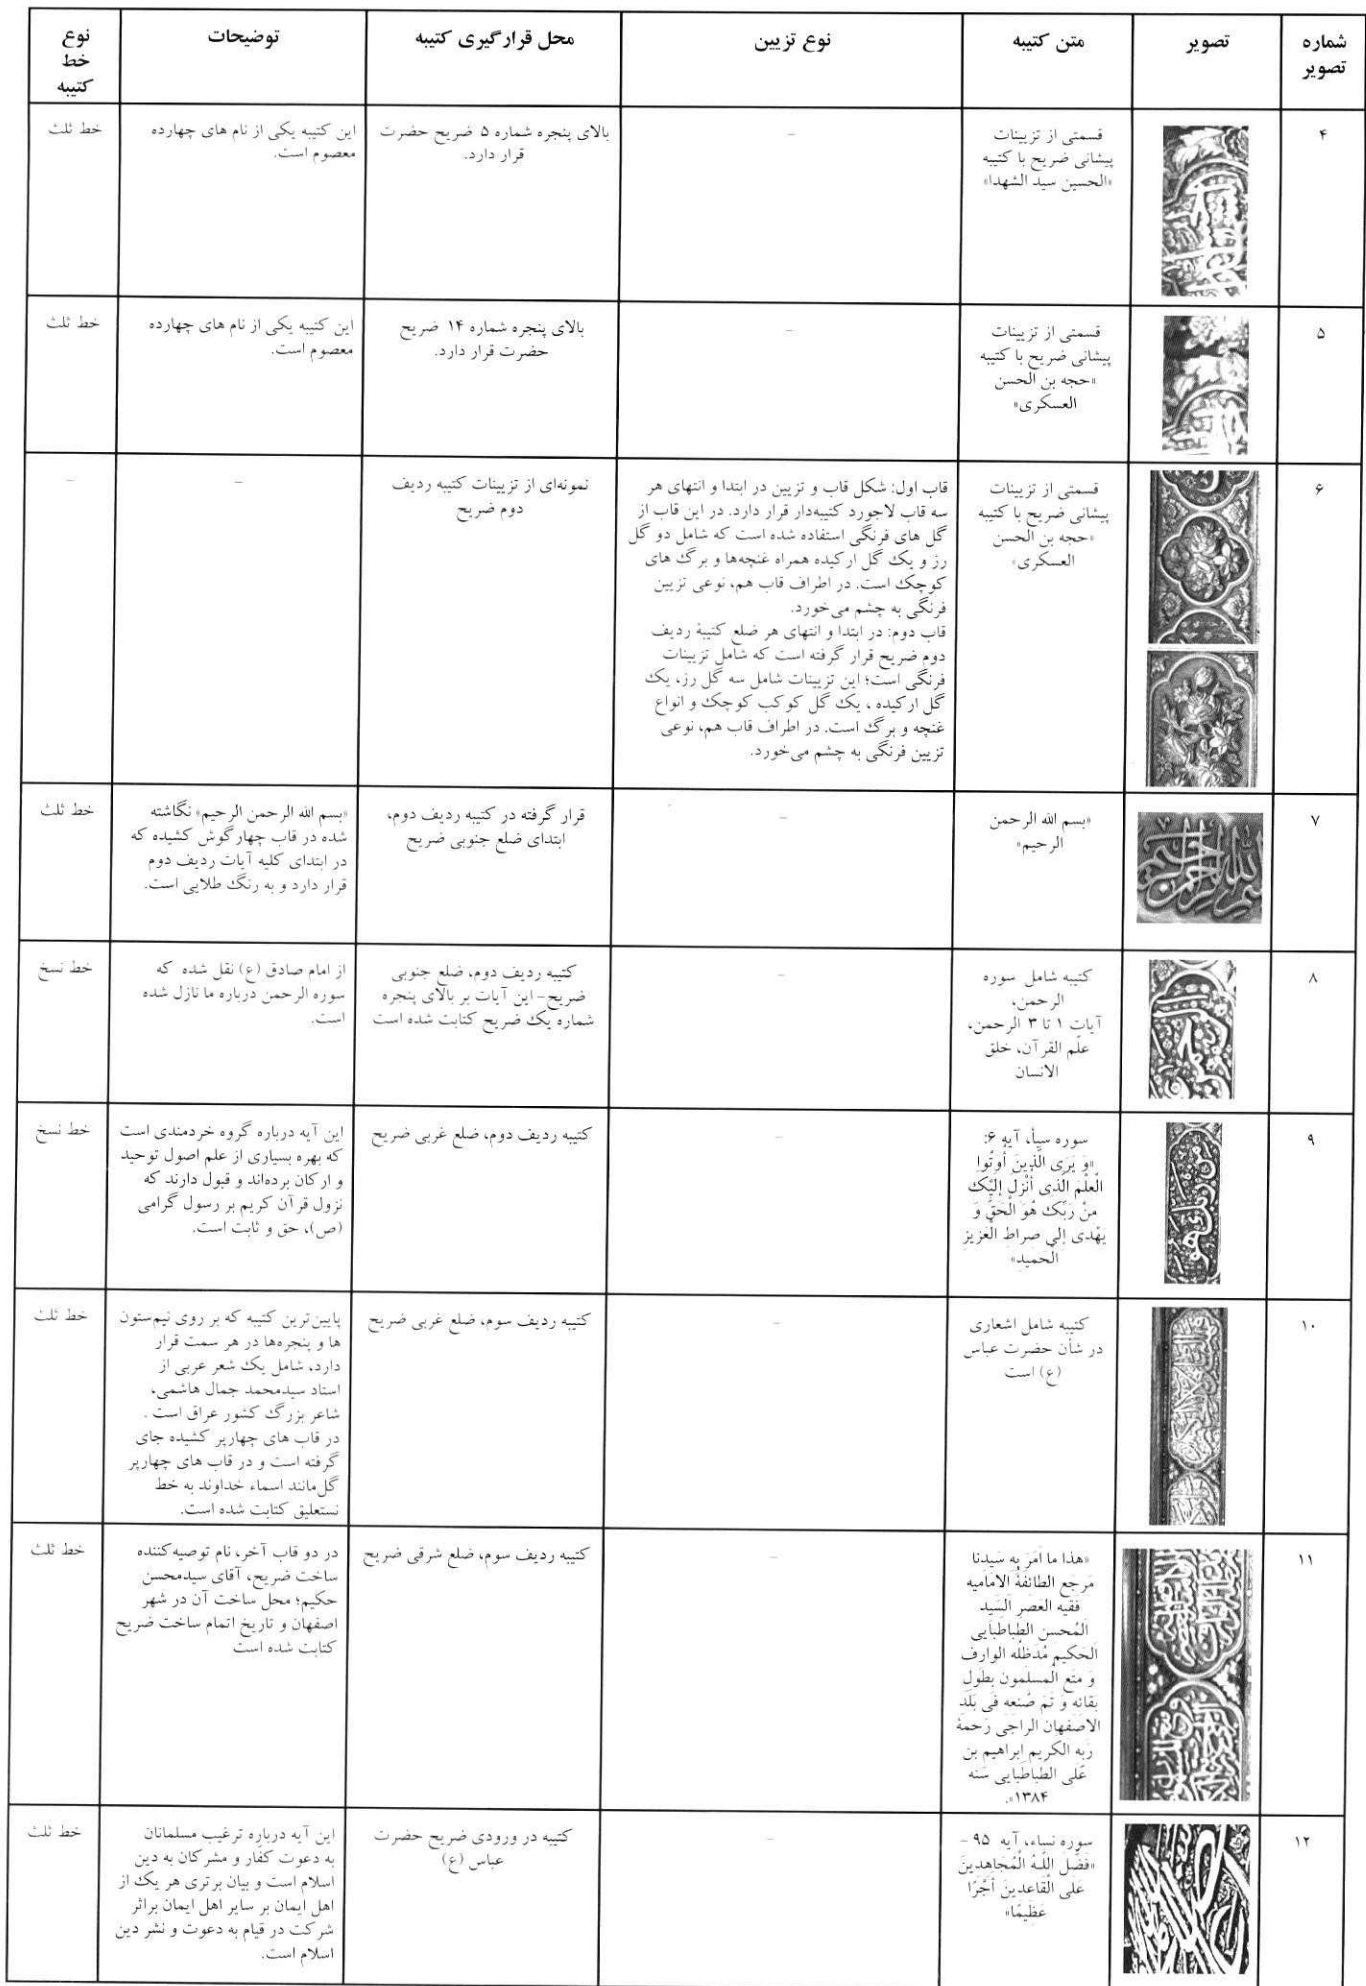 شماره
تصویر
تصویر
متن کتیبه
نوع تزیین
محل قرارگیری کتیبه
توضیحات
نوع
خط
کتیبه
۴
قسمتی از تزیینات
پیشانی ضریح با کتیبه
«الحسین سید الشهدا»
–
بالای پنجره شماره ۵ ضریح حضرت
قرار دارد.
این کتیبه یکی از نام های چهارده
معصوم است.
خط ثلث
۵
قسمتی از تزیینات
پیشانی ضریح با کتیبه
«حجه بن الحسن
العسکری»
–
بالای پنجره شماره ۱۴ ضریح
حضرت قرار دارد.
این کتیبه یکی از نام های چهارده
معصوم است.
خط ثلث
۶
قسمتی از تزیینات
پیشانی ضریح با کتیبه
«حجه بن الحسن
العسکری»
قاب اول: شکل قاب و تزیین در ابتدا و انتهای هر
سه قاب لاجورد کتیبه‌دار قرار دارد. در این قاب از
گل های فرنگی استفاده شده است که شامل دو گل
رز و یک گل ارکیده همراه غنچه‌ها و برگ های
کوچک است. در اطراف قاب هم، نوعی تزیین
فرنگی به چشم می‌خورد.
قاب دوم: در ابتدا و انتهای هر ضلع کتیبۀ ردیف
دوم ضریح قرار گرفته است که شامل تزیینات
فرنگی است؛ این تزیینات شامل سه گل رز، یک
گل ارکیده ، یک گل کوکب کوچک و انواع
غنچه و برگ است. در اطراف قاب هم، نوعی
تزیین فرنگی به چشم می‌خورد.
نمونه‌ای از تزیینات کتیبه ردیف
دوم ضریح
–
–
۷
«بسم الله الرحمن
الرحیم»
–
قرار گرفته در کتیبه ردیف دوم،
ابتدای ضلع جنوبی ضریح
«بسم الله الرحمن الرحیم» نگاشته
شده در قاب چهارگوش کشیده که
در ابتدای کلیه آیات ردیف دوم
قرار دارد و به رنگ طلایی است.
خط ثلث
۸
کتیبه شامل سوره
الرحمن،
آیات ۱ تا ۳ الرحمن،
علّم القرآن، خلق
الانسان
–
کتیبه ردیف دوم، ضلع جنوبی
ضریح- این آیات بر بالای پنجره
شماره یک ضریح کتابت شده است
از امام صادق (ع) نقل شده که
سوره الرحمن درباره ما نازل شده
است.
خط نسخ
۹
سوره سبأ، آیه ۶:
«وَ یَرَی الَّذینَ أُوتُوا
الْعِلْمَ الَّذی أُنْزِلَ إِلَیْکَ
مِنْ رَبِّکَ هُوَ الْحَقَّ وَ
یَهْدی إِلی صِراطِ الْعَزیزِ
الْحَمیدِ»
–
کتیبه ردیف دوم، ضلع غربی ضریح
این آیه درباره گروه خردمندی است
که بهره بسیاری از علم اصول توحید
و ارکان برده‌اند و قبول دارند که
نزول قرآن کریم بر رسول گرامی
(ص)، حق و ثابت است.
خط نسخ
۱۰
کتیبه شامل اشعاری
در شأن حضرت عباس
(ع) است
–
کتیبه ردیف سوم، ضلع غربی ضریح
پایین‌ترین کتیبه که بر روی نیم‌ستون
ها و پنجره‌ها در هر سمت قرار
دارد، شامل یک شعر عربی از
استاد سیدمحمد جمال هاشمی،
شاعر بزرگ کشور عراق است .
در قاب های چهارپر کشیده جای
گرفته است و در قاب های چهارپر
گل‌مانند اسماء خداوند به خط
نستعلیق کتابت شده است.
خط ثلث
۱۱
«هذا ما اَمَرَ به سَیدنا
مَرجَع الطائفةُ الامامیه
فقیه العصر السَید
اَلمُحسن الطَباطَبایی
اَلحَکیم مُدَظِلُه الوارف
وَ مَتع اْلمسلمون بِطَول
بقائه وَ تَمَ صُنعه فی بَلَد
الاصفهان الراجی رَحمة
رَبه الکریم ابراهیم بن
عَلی الطَباطَبایی سَنه
۱۳۸۴».
–
کتیبه ردیف سوم، ضلع شرقی ضریح
در دو قاب آخر، نام توصیه‌کننده
ساخت ضریح، آقای سیدمحسن
حکیم؛ محل ساخت آن در شهر
اصفهان و تاریخ اتمام ساخت ضریح
کتابت شده است
خط ثلث
۱۲
سوره نساء، آیه ۹۵ -
«فَضَّلَ اللَّـهُ الْمُجاهِدینَ
عَلَی الْقاعِدینَ أَجْرًا
عَظیمًا»
–
کتیبه در ورودی ضریح حضرت
عباس (ع)
این آیه درباره ترغیب مسلمانان
به دعوت کفّار و مشرکان به دین
اسلام است و بیان برتری هر یک از
اهل ایمان بر سایر اهل ایمان براثر
شرکت در قیام به دعوت و نشر دین
اسلام است.
خط ثلث